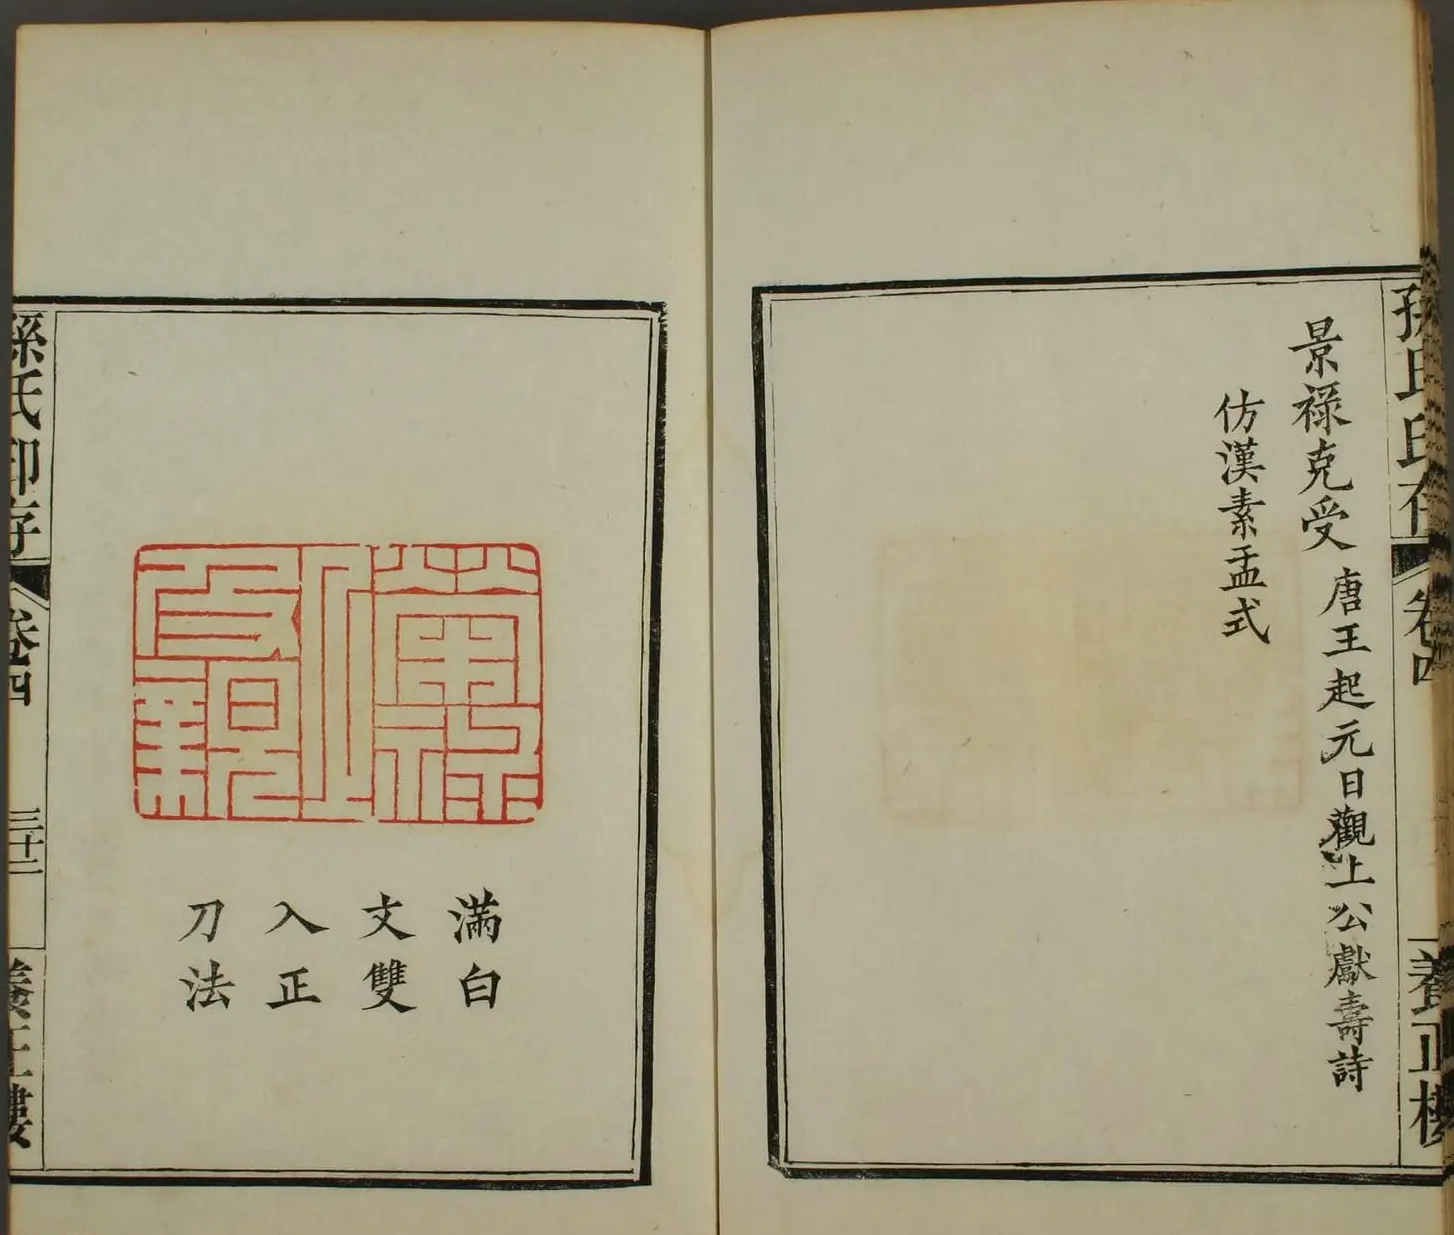 孫氏印存
卷四
養正樓
景祿克受
唐王起元日觀上公獻壽詩
仿漢素盂式
滿白
文雙
入正
刀法
孫氏印存
卷四
三十二
養正樓